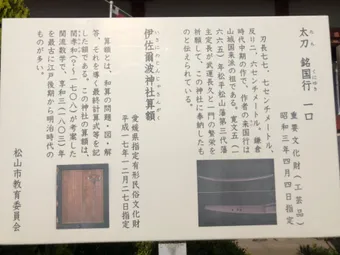 太刀 銘国行 一口
重要文化財(工芸品)
昭和三年四月四日指定
刃長七七、七センチメートル、
反り二、六センチメートル。鎌倉
時代中期の作で、作者の来国行は
山城国来派の祖である。寛文五(一
六六五)年松平松山藩第三代藩
主定長が武運長久と一門の繁栄を
祈願して、この神社に奉納したも
のと伝えられている。
伊佐爾波神社算額
愛媛県指定有形民俗文化財
平成一七年一二月二七日指定
算額とは、和算の問題・図・解
答、それを導く最終計算式等を記
した額である。この神社の算額は、
関孝和(?〜一七〇八)が考案した
関流数学で、享和三(一八〇三)年
を最古に江戸後期から明治時代の
ものが多い。
松山市教育委員会